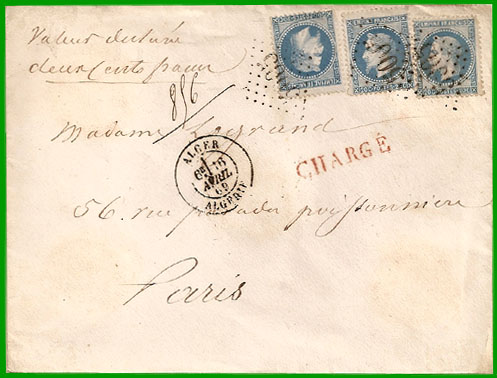 Valeur déclarée
deux cents francs
856
EMPIRE FRANÇAIS
EMPIRE FRANÇAIS
Madame Legrand
CHARGÉ
ALGER
16
AVRIL
69
ALGERIE
56. rue du poissonnière
Paris